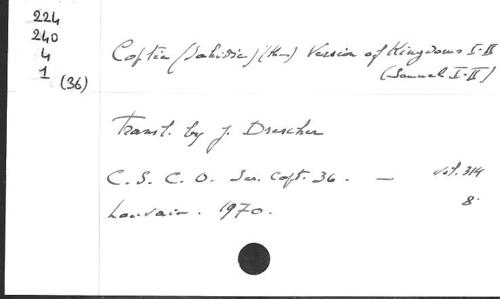 224
240
4
1 (36)
Coptic (Sahidic) (the) Version of Kingdoms I-II
(Samuel I-II)
Transl. by J. Drescher
C. S. C. O. Ser. Copt. 36. — vol. 314
Louvain. 1970. 8